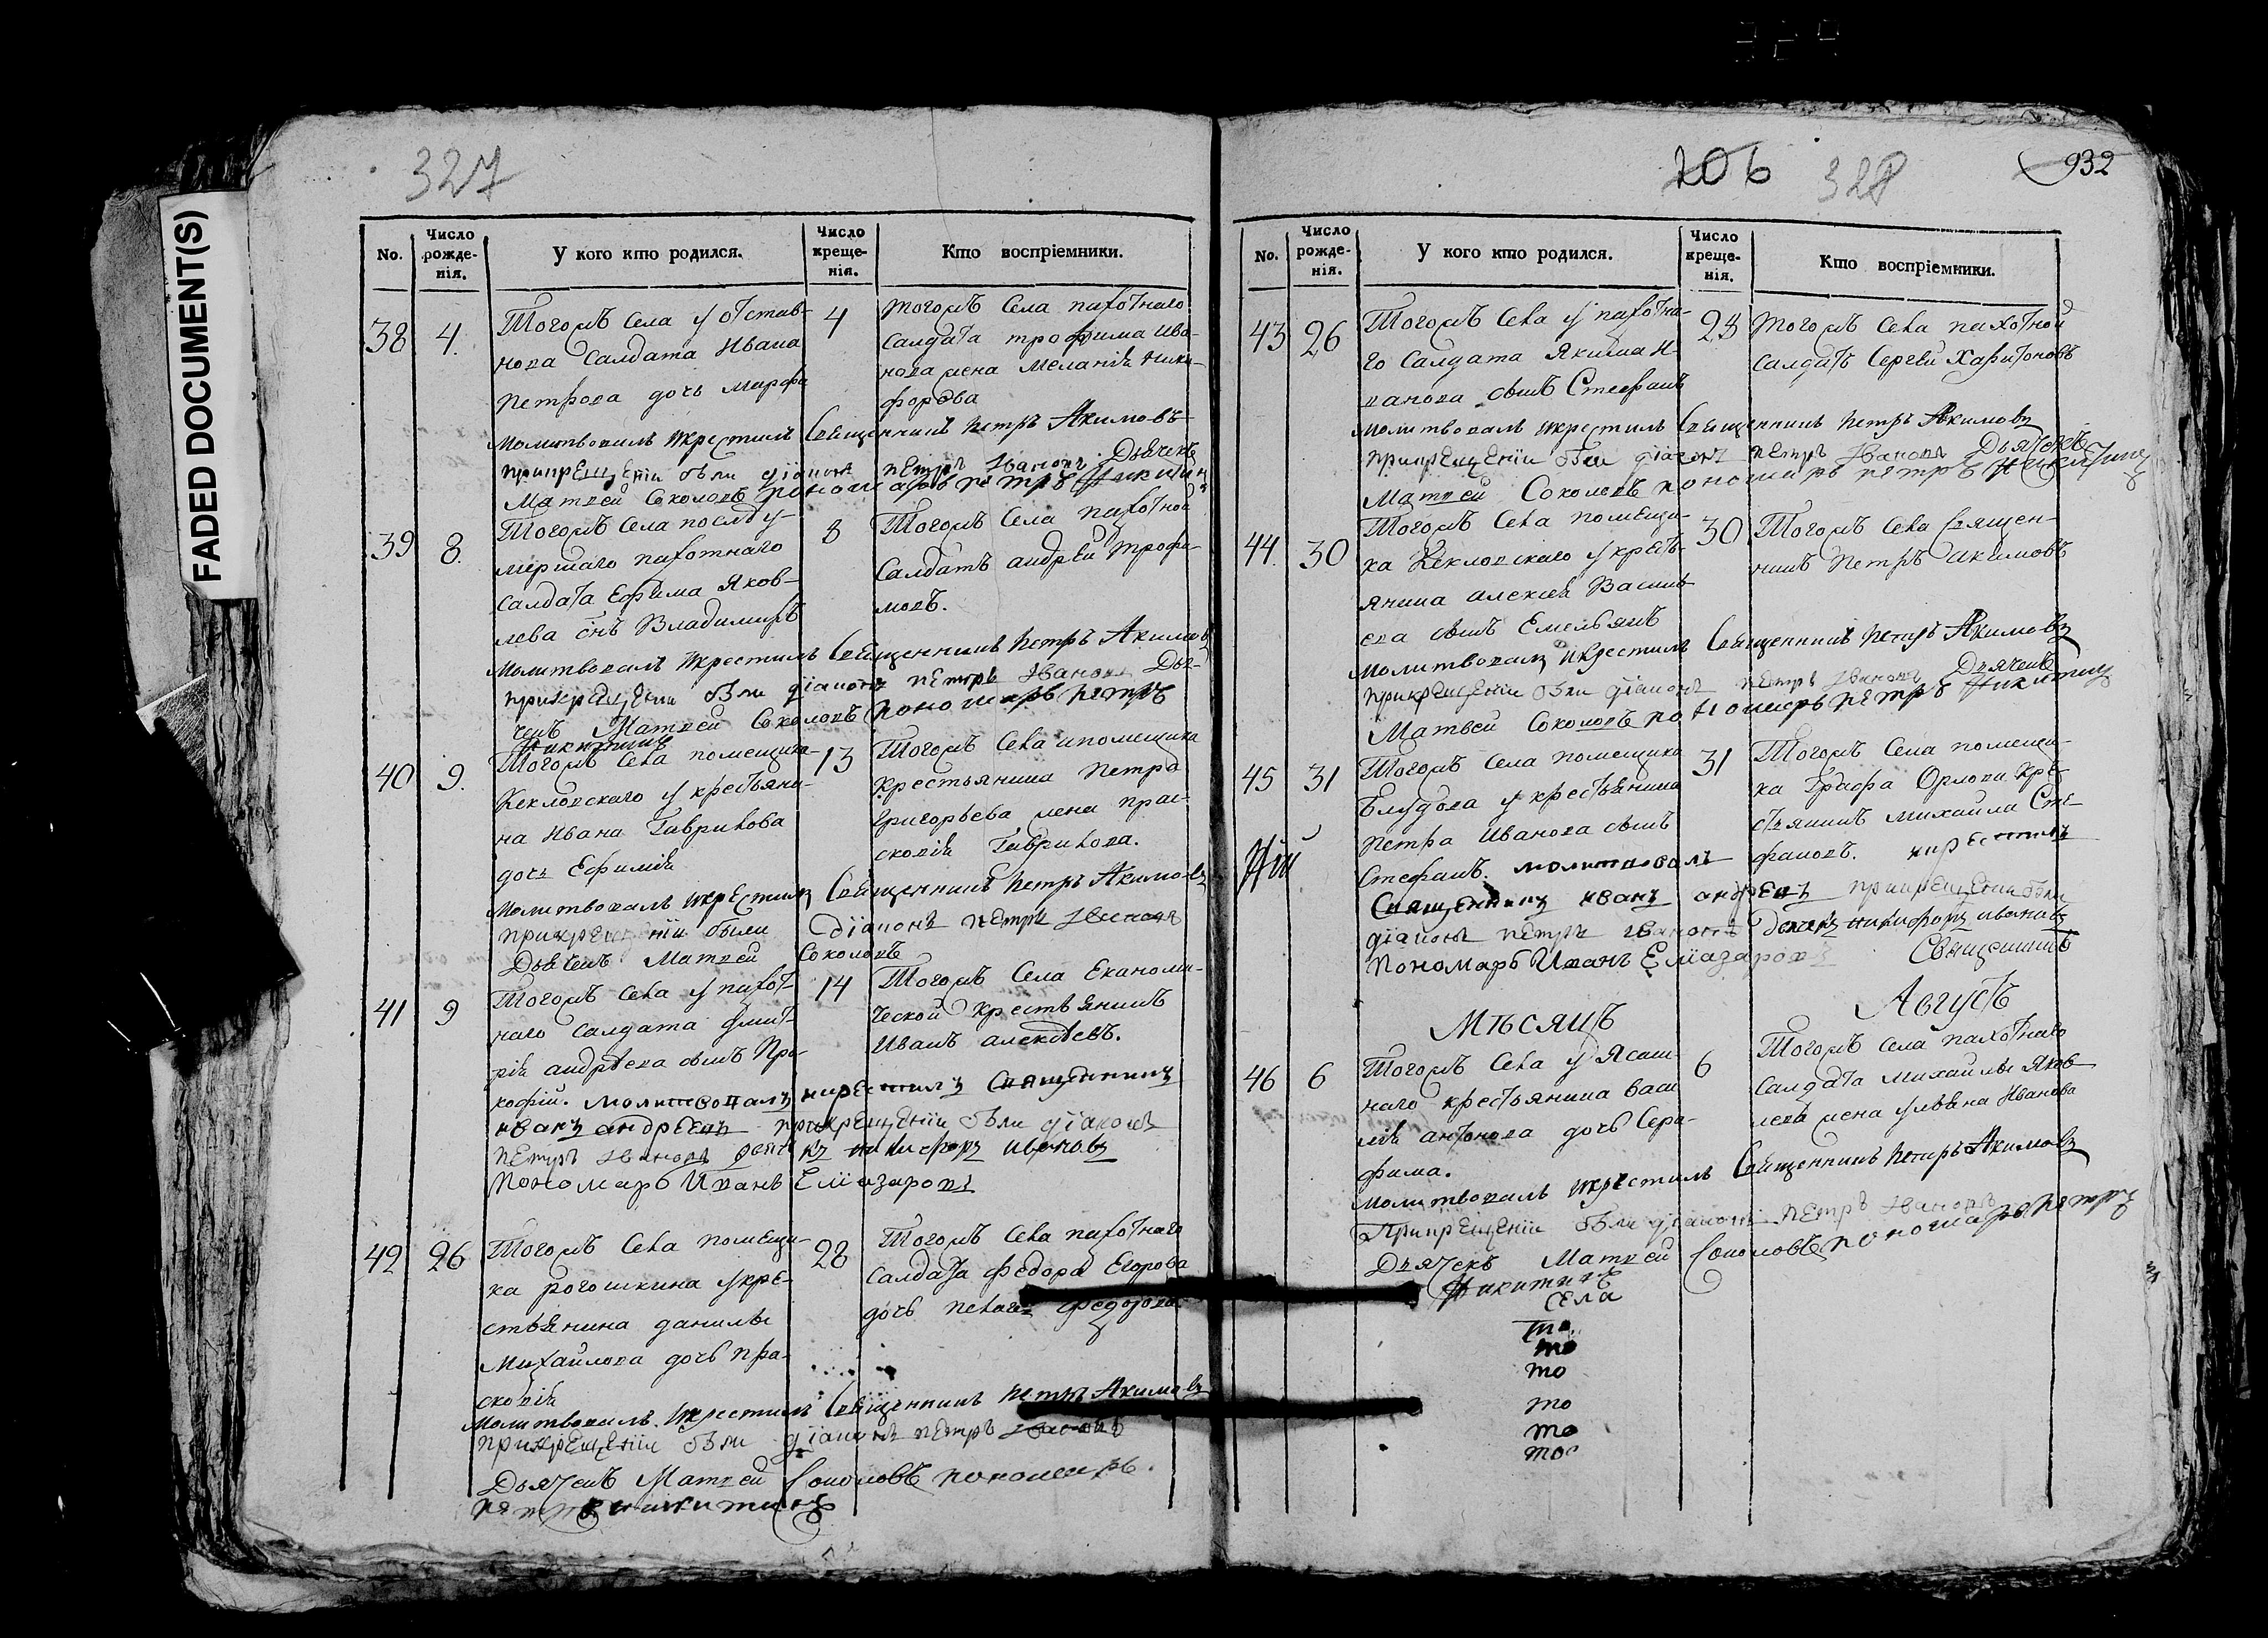 FADED DOCUMENT(S)
327
No.
Число рожденія.
У кого кто родился.
Число крещенія.
Кто воспріемники.
38
4.
Тогожъ Села у отстав-
нова Салдата Ивана
петрова дочь марфа
4
тогожъ Села пахотнаго
Салдата трофима ива-
нова жена меланія ники-
форова
молитвовалъ икрестилъ Священникъ петръ Акимовъ
прикрещеніи были діаконъ петръ Ивановъ Дьячекъ
Матвей Соколовъ пономарь петръ Никитинъ
39
8.
Тогожъ Села послѣ у-
мершаго пахотнаго
Салдата Ефима Яков-
лева снъ Владимиръ
8
Тогожъ Села пахотной
Салдатъ андрей трофи-
мовъ.
молитвовалъ икрестилъ Священникъ петръ Акимовъ
прикрещеніи были діаконъ петръ Ивановъ Дья-
чекъ Матвей Соколовъ пономарь петръ
Никитинъ
40
9.
Тогожъ Села помещика
Кекловскаго у крестьяни-
на Ивана Гаврилова
дочь Ефимія
13
Тогожъ Села ипомещика
крестьянина петра
григорьева жена прас-
ковія Гаврилова.
молитвовалъ икрестилъ Священникъ петръ Акимовъ
прикрещеніи были діаконъ петръ Ивановъ
Дьячекъ Матвей Соколовъ
41
9
Тогожъ Села у пахот-
наго Салдата дмит-
рія андрѣева сынъ Про-
кофій. молитвовалъ икрестилъ Священникъ
14
Тогожъ Села Економи-
ческой крестьянинъ
Иванъ алексѣевъ.
иванъ андреевъ прикрещеніи были діаконъ
петръ Ивановъ дьячекъ никифоръ ивановъ
Пономарь Иванъ Еліазаровъ
42
26
Тогожъ Села помещи-
ка рогошкина у кре-
стьянина данилы
Михайлова дочь пра-
сковія
28
Тогожъ Села пахотнаго
Салдата федора Егорова
дочь пелагея федорова
Молитвовалъ икрестилъ Священникъ петръ Акимовъ
прикрещеніи были діаконъ петръ Ивановъ
Дьячекъ Матвей Соколовъ пономарь
петръ никитинъ
206 328 932
No.
Число рожденія.
У кого кто родился.
Число крещенія.
Кто воспріемники.
43
26
Тогожъ Села у пахотна-
го Салдата Якима И-
ванова сынъ Стефанъ
28
тогожъ Села пахотной
Салдатъ Сергей Харитоновъ
молитвовалъ икрестилъ Священникъ петръ Акимовъ
прикрещеніи были діаконъ петръ Ивановъ Дьячекъ
Матвей Соколовъ пономарь петръ Никитинъ
44.
30
Тогожъ Села помещи-
ка Кекловскаго у кресть-
янина алексія Василь-
ева сынъ Емельянъ
30
Тогожъ Села Священ-
никъ петръ Акимовъ
молитвовалъ икрестилъ Священникъ петръ Акимовъ
прикрещеніи были діаконъ петръ Ивановъ Дьячекъ
Матвей Соколовъ пономарь петръ Никитинъ
45
31
Тогожъ Села помещика
Блудова у крестьянина
петра Иванова сынъ
Стефанъ. молитвовалъ
31
Тогожъ Села помещи-
ка Графа Орлова кре-
стьянинъ михаила Сте-
фановъ. икрестилъ
Священникъ иванъ андреевъ прикрещеніи были
діаконъ петръ Ивановъ дьячекъ никифоръ ивановъ
Пономарь Иванъ Еліазаровъ Священникъ
Мѣсяцъ Августъ
46
6
Тогожъ Села у Ясаш-
наго крестьянина васи
лія антонова дочь Сера-
фима.
6
Тогожъ Села пахотнаго
Салдата михайлы Яков
лева жена ульяна Иванова
молитвовалъ икрестилъ Священникъ петръ Акимовъ
Прикрещеніи были діаконъ петръ Ивановъ
Дьячекъ Матвей Соколовъ пономарь петръ
Никитинъ
Села
то
то
то
то
то
то